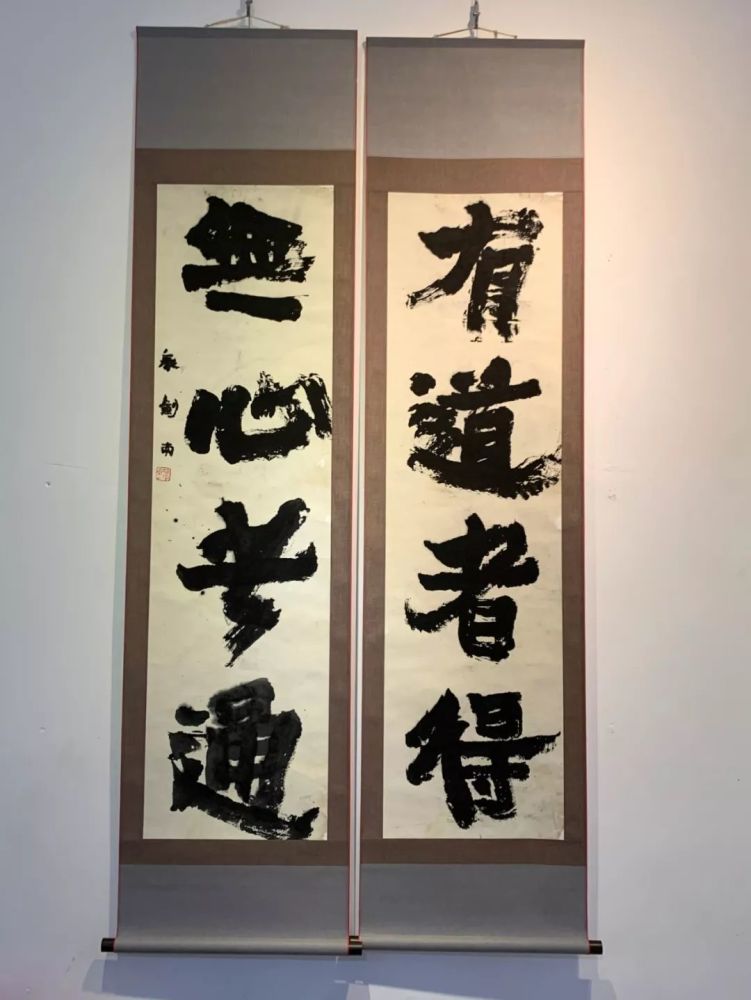 有道者得
無心者通
劍南